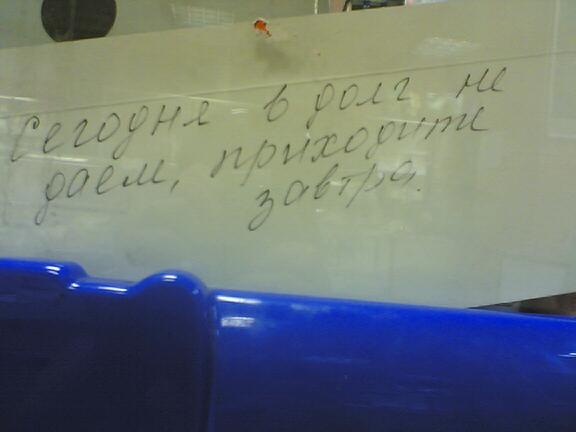 Сегодня в долг не
даем, приходите
завтра.